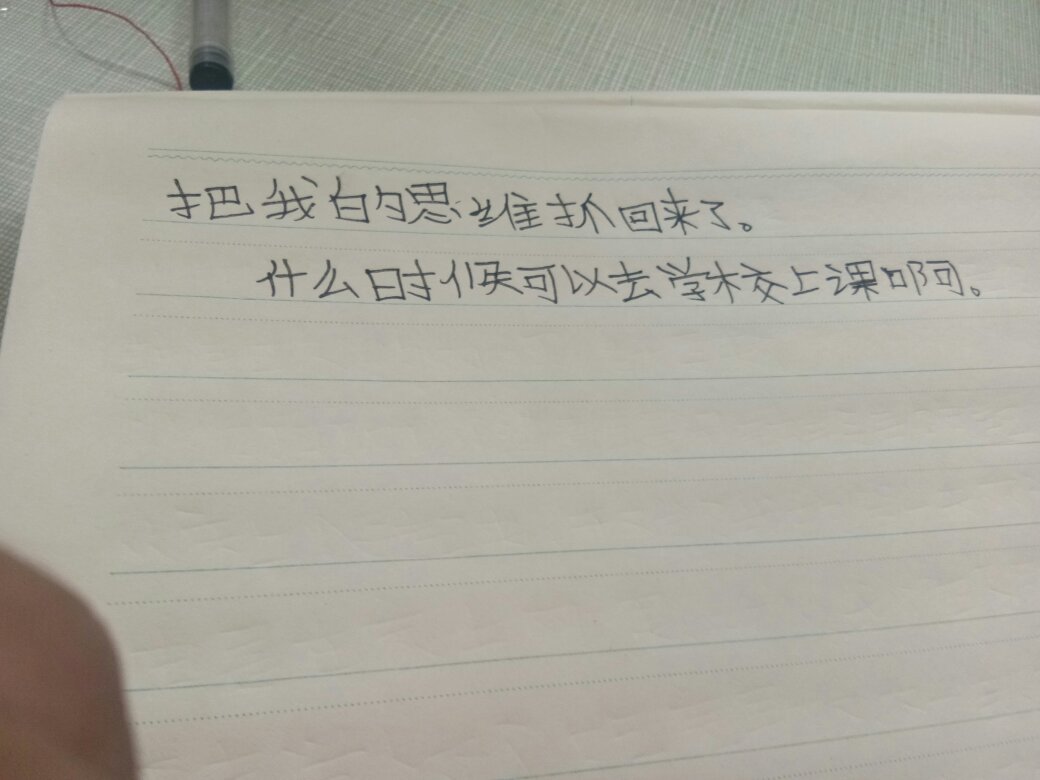 把我的思维抓回来了。
什么时候可以去学校上课啊。